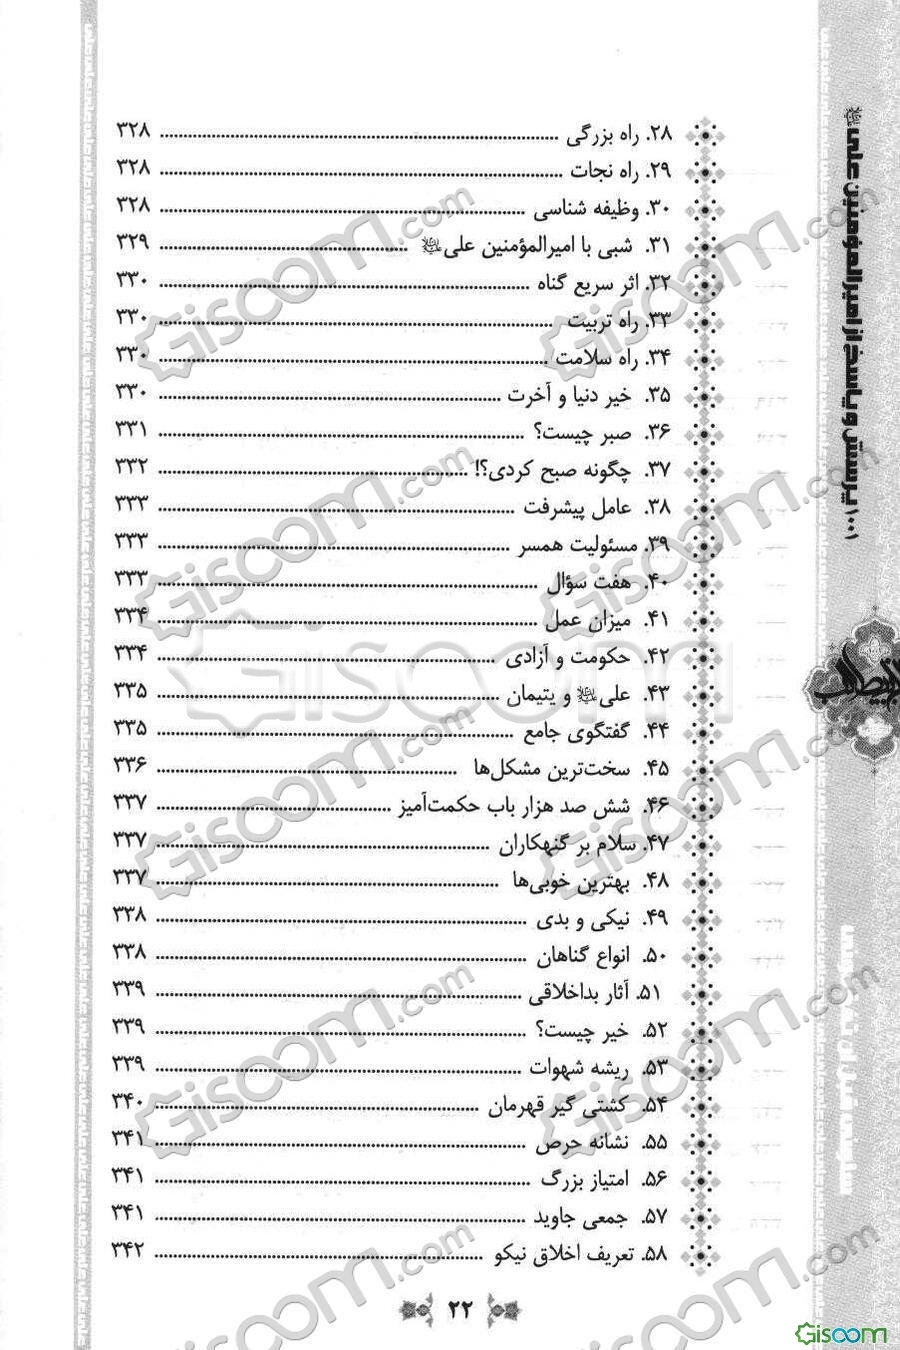 ۱۰۰۱ پرسش و پاسخ از امیرالمؤمنین علی
۲۸. راه بزرگی ........ ۳۲۸
۲۹. راه نجات ........ ۳۲۸
۳۰. وظیفه شناسی ........ ۳۲۸
۳۱. شبی با امیرالمؤمنین علی ........ ۳۲۹
۳۲. اثر سریع گناه ........ ۳۳۰
۳۳. راه تربیت ........ ۳۳۰
۳۴. راه سلامت ........ ۳۳۰
۳۵. خیر دنیا و آخرت ........ ۳۳۰
۳۶. صبر چیست؟ ........ ۳۳۱
۳۷. چگونه صبح کردی؟! ........ ۳۳۲
۳۸. عامل پیشرفت ........ ۳۳۳
۳۹. مسئولیت همسر ........ ۳۳۳
۴۰. هفت سؤال ........ ۳۳۳
۴۱. میزان عمل ........ ۳۳۴
۴۲. حکومت و آزادی ........ ۳۳۴
۴۳. علی و یتیمان ........ ۳۳۵
۴۴. گفتگوی جامع ........ ۳۳۵
۴۵. سخت‌ترین مشکل‌ها ........ ۳۳۶
۴۶. شش صد هزار باب حکمت‌آمیز ........ ۳۳۷
۴۷. سلام بر گنهکاران ........ ۳۳۷
۴۸. بهترین خوبی‌ها ........ ۳۳۷
۴۹. نیکی و بدی ........ ۳۳۸
۵۰. انواع گناهان ........ ۳۳۸
۵۱. آثار بداخلاقی ........ ۳۳۹
۵۲. خیر چیست؟ ........ ۳۳۹
۵۳. ریشه شهوات ........ ۳۳۹
۵۴. کشتی گیر قهرمان ........ ۳۴۰
۵۵. نشانه حرص ........ ۳۴۱
۵۶. امتیاز بزرگ ........ ۳۴۱
۵۷. جمعی جاوید ........ ۳۴۱
۵۸. تعریف اخلاق نیکو ........ ۳۴۲
۲۲
Giscom.com
Giscom